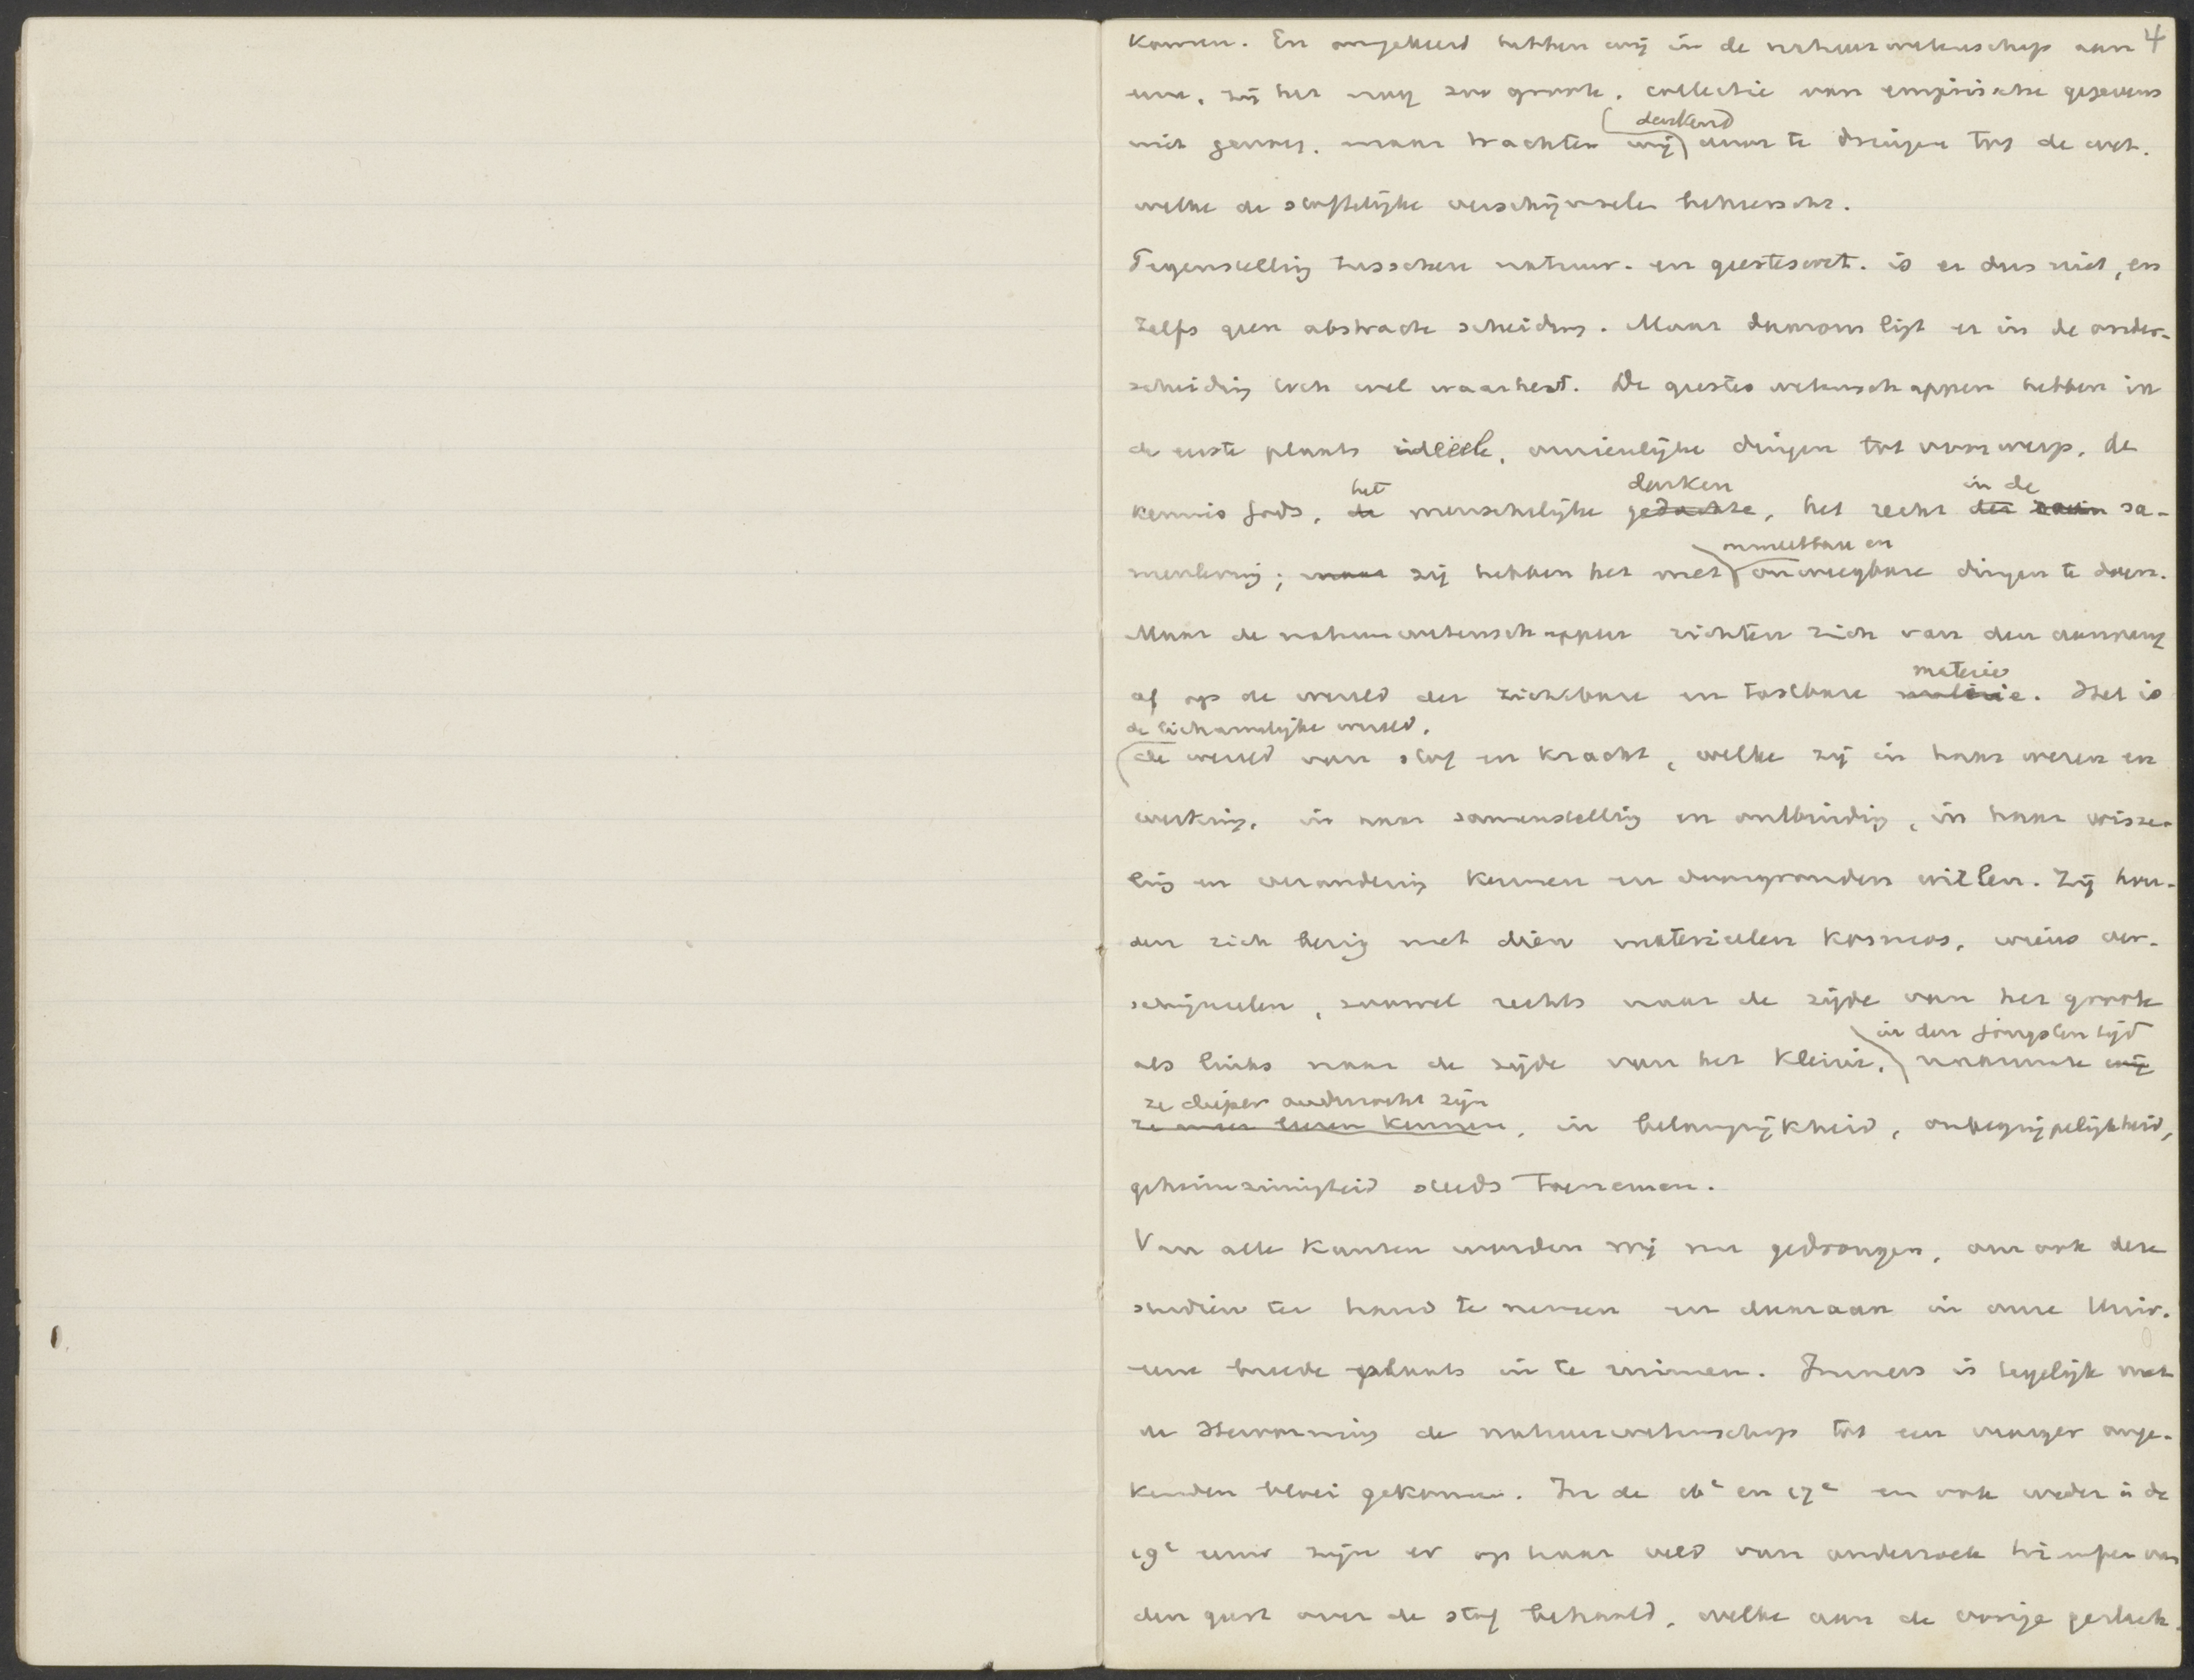 4
komen. En omgekeerd hebben wij in de natuurwetenschap aan
eene, zij het nog zoo groote, collectie van empirische gegevens
denkend
niet genoeg, maar trachten wij door te dringen tot de wet,
welke de stoffelijke verschijnselen beheerscht.
Tegenstelling tusschen natuur- en geesteswet. is er dus niet, en
zelfs geen abstracte scheiding. Maar daarom ligt er in de onder-
scheiding toch wel waarheid. De geesteswetenschappen hebben in
de eerste plaats ideëele, onzienlijke dingen tot voorwerp, de
het denken in de
kennis Gods, de menschelijke gedachte, het recht der sa-
onmeetbare en
menleving; maar zij hebben het met onweegbare dingen te doen.
Maar de natuurwetenschappen richten zich van den aanvang
materie
af op de wereld der zichtbare en tastbare materie. Het is
de lichamelijke wereld,
de wereld van stof en kracht, welke zij in haar wezen en
werking, in haar samenstelling en ontbinding, in haar wisse-
ling en verandering kennen en doorgronden willen. Zij hou-
den zich bezig met dien materieelen kosmos, wiens ver-
schijnselen, zoowel rechts naar de zijde van het groote
in den jongsten tijd
als links naar de zijde van het kleine, naarmate wij
ze dieper onderzocht zijn
ze meer leeren kennen, in belangrijkheid, onbegrijpelijkheid,
geheimzinnigheid steeds toenemen.
Van alle kanten worden wij nu gedrongen, om ook deze
studiën ter hand te nemen en daaraan in onze Univ.
eene breede plaats in te ruimen. Immers is tegelijk met
de Hervorming de natuurwetenschap tot een vroeger onge-
kenden bloei gekomen. In de 16e en 17e en ook weder in de
19e eeuw zijn er op haar veld van onderzoek triumfen van
den geest over de stof behaald, welke aan de vorige geslach-